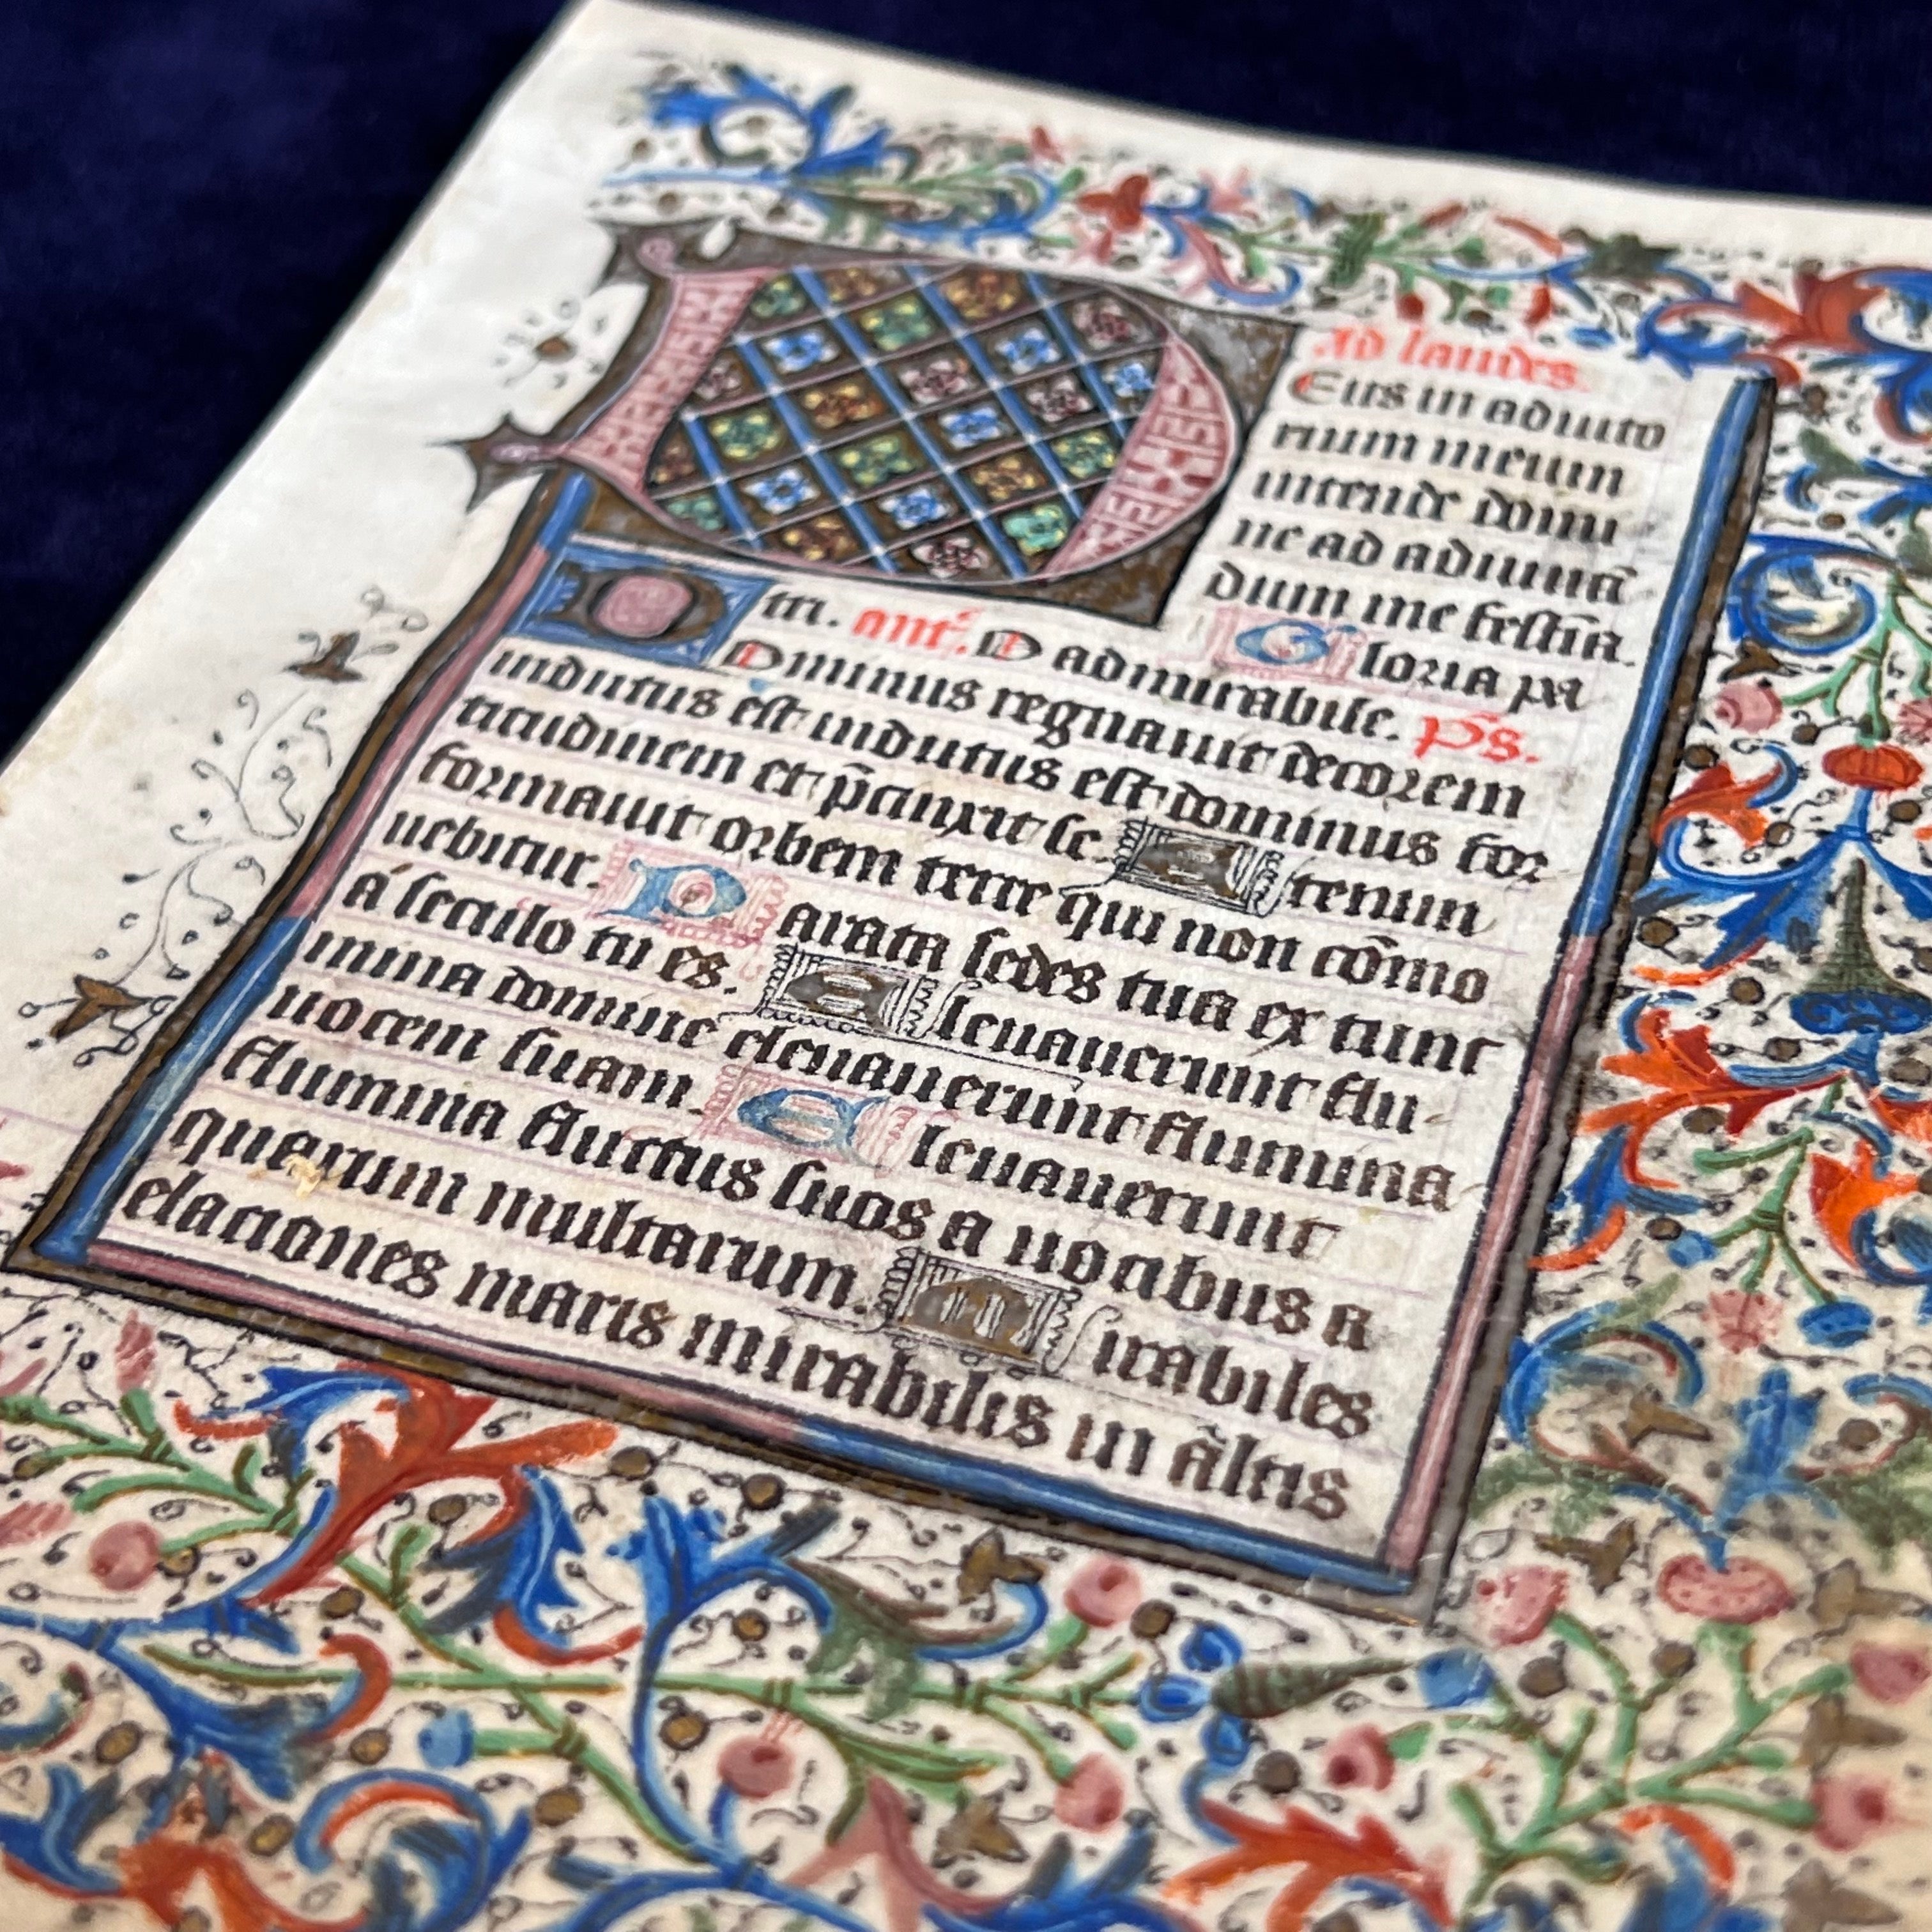 Ad laudes.
DEus in adiuto
rium meum
intende domi
ne ad adiuuã
dum me festĩa.
Gloria pa
tri. ant͛. O admirabile. p̃s.
DOminus regnauit decorem
indutus est indutus est dominus for
titudinem et p̃cinxit se. Etenim
formauit orbem terre qui non cõmo
uebitur. Parata sedes tua ex tunc
á seculo tu es. Eleuauerunt flu-
mina domine eleuauerunt flumina
uocem suam. Eleuauerunt
flumina fluctus suos a uocibus a
quarum multarum. Mirabiles
elaciones maris mirabilis in ãltis